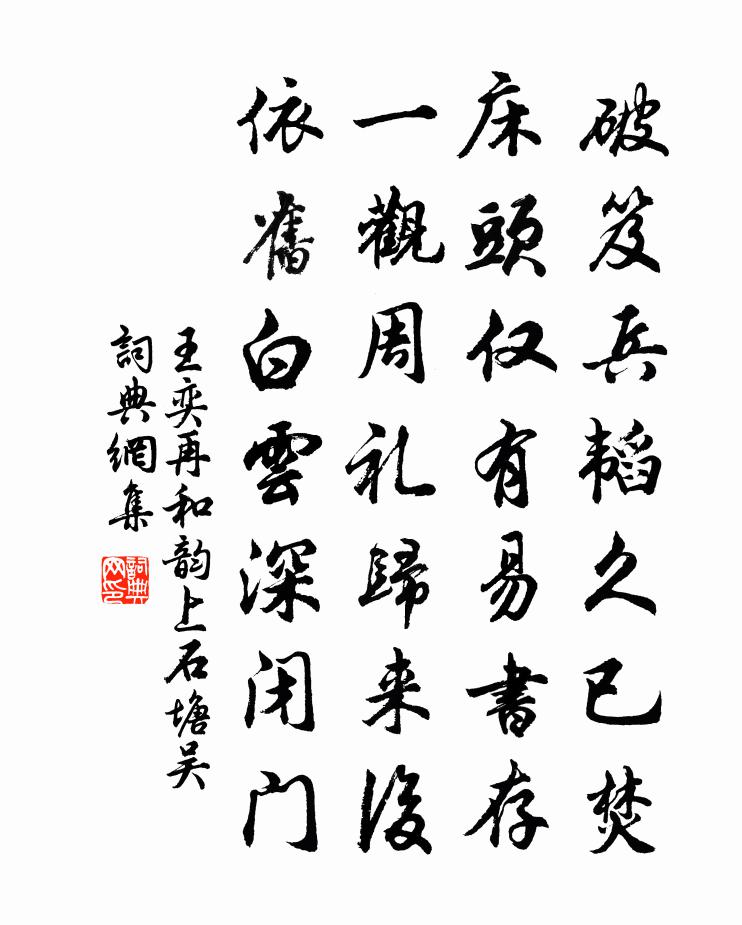 破笈兵韬久已焚
床頭仅有易書存
一觀周礼歸来後
依舊白雲深闭门
王奕再和韵上石塘吴
詞典網集
詞典网印